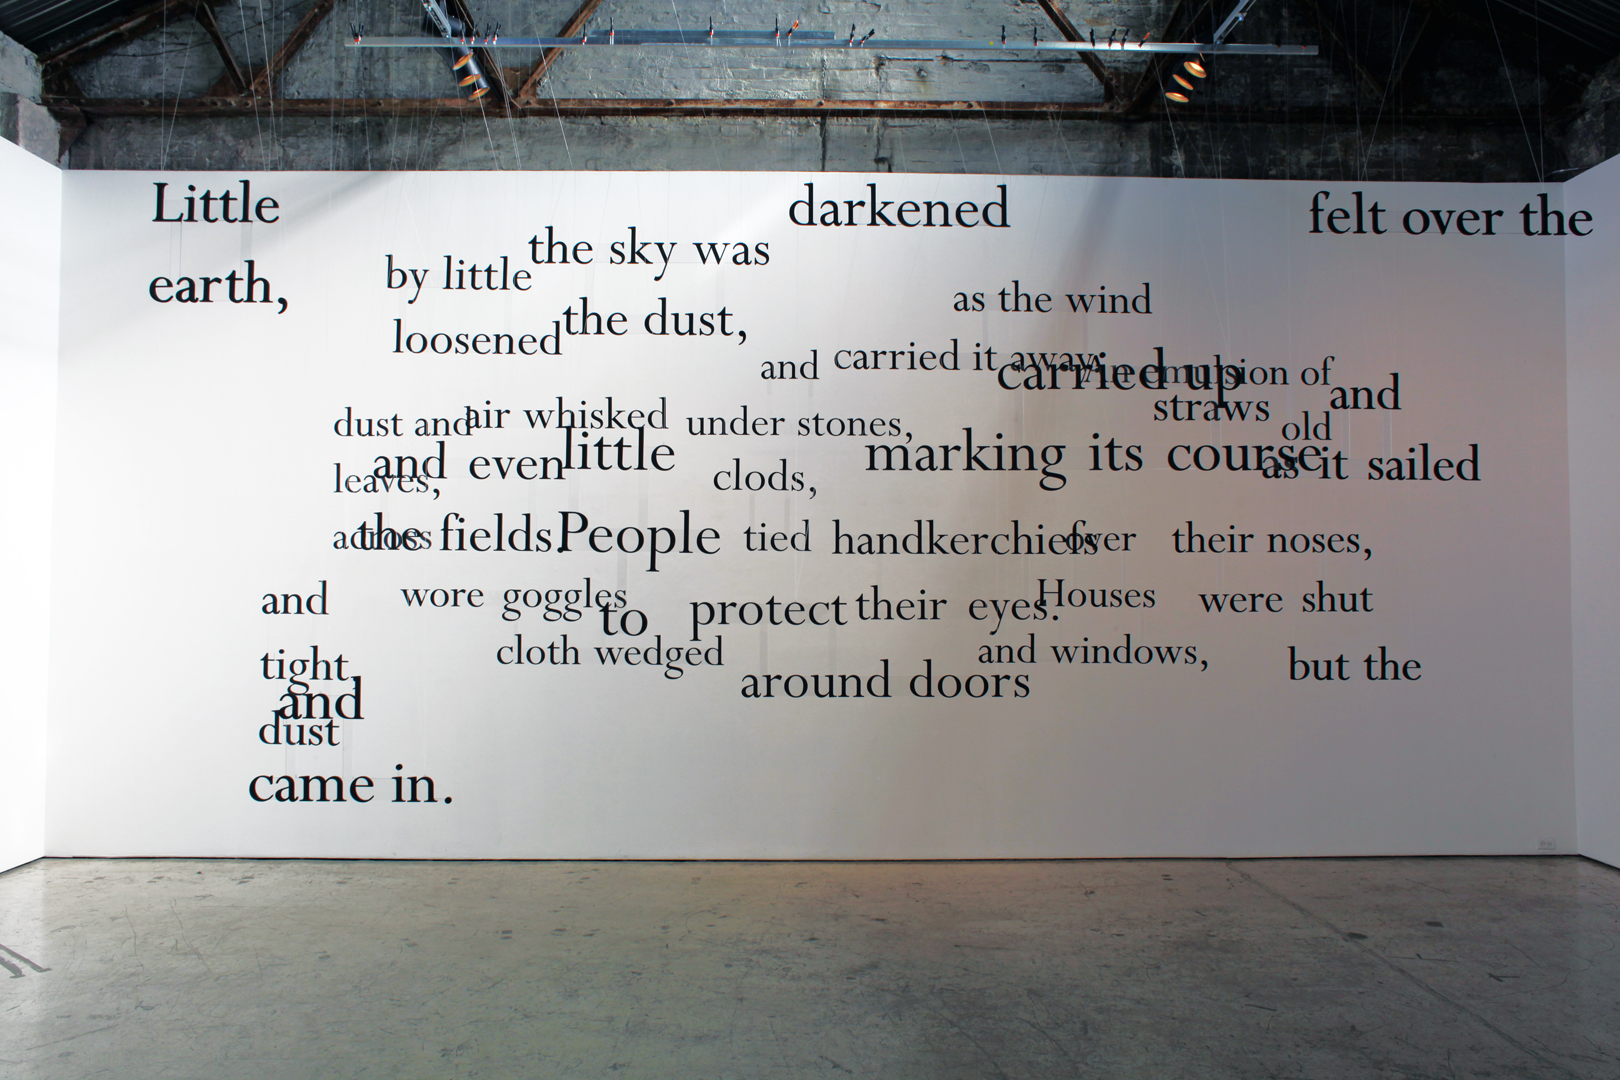 Little by little the sky was darkened
felt over the
earth, loosened the dust, as the wind
and carried it away. An emulsion of
carried up straws and old
dust and air whisked under stones,
leaves, and even little clods, marking its course as it sailed
across the fields. People tied handkerchiefs over their noses,
and wore goggles to protect their eyes. Houses were shut
tight, and cloth wedged around doors and windows, but the
dust
came in.